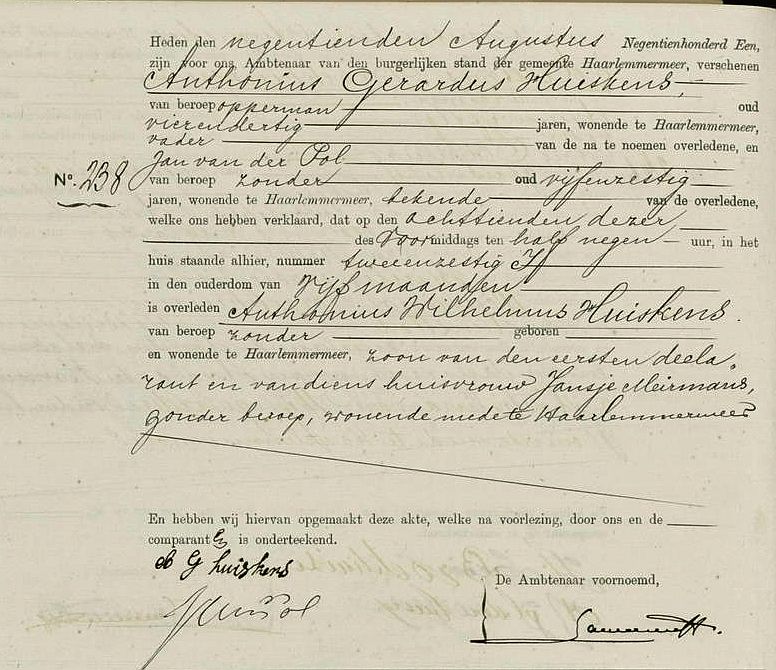 Heden den negentienden Augustus Negentienhonderd Een,
zijn voor ons, Ambtenaar van den burgerlijken stand der gemeente Haarlemmermeer, verschenen
Anthonius Gerardus Huiskens,
van beroep opperman oud
vierendertig jaren, wonende te Haarlemmermeer,
vader van de na te noemen overledene, en
Jan van der Pol
No. 238 van beroep zonder oud vijfenzestig
jaren, wonende te Haarlemmermeer, bekende van de overledene,
welke ons hebben verklaard, dat op den achttienden dezer
des Voormiddags ten half negen uur, in het
huis staande alhier, nummer tweeenzestig
in den ouderdom van Vijf maanden
is overleden Anthonius Wilhelmus Huiskens.
van beroep zonder geboren
en wonende te Haarlemmermeer, zoon van den eersten decla-
rant en van diens huisvrouw Jansje Meirmans,
zonder beroep, wonende mede te Haarlemmermeer
En hebben wij hiervan opgemaakt deze akte, welke na voorlezing, door ons en de
comparanten is onderteekend.
A G huiskens
De Ambtenaar voornoemd,
JvdPol